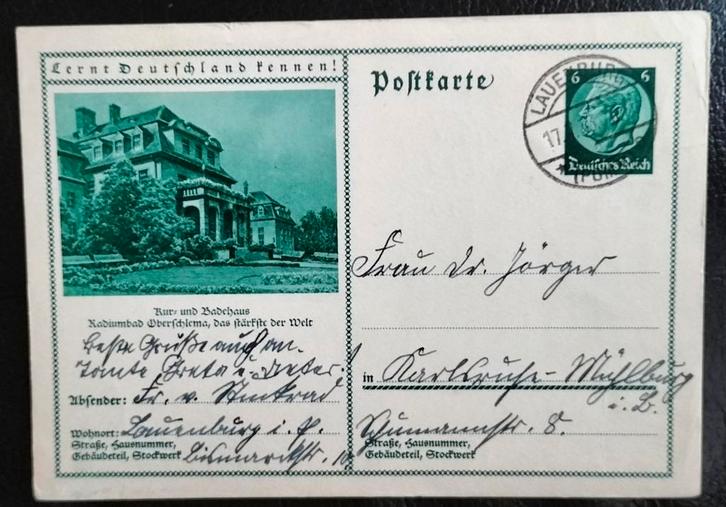 Lernt Deutschland kennen!
Kur- und Badehaus
Radiumbad Oberschlema, das stärkste der Welt
Beste Grüße auch an
Tante Greta u.
Absender: Fr. v.
Wohnort: Lauenburg i. P.
Straße, Hausnummer,
Gebäudeteil, Stockwerk Bismarckstr.
Postkarte
LAUENBURG
17.
(POM
6 6
Deutsches Reich
Frau Dr. Jörger
in Karlsruhe-Mühlburg
i. B.
Schumannstr. 8.
Straße, Hausnummer,
Gebäudeteil, Stockwerk